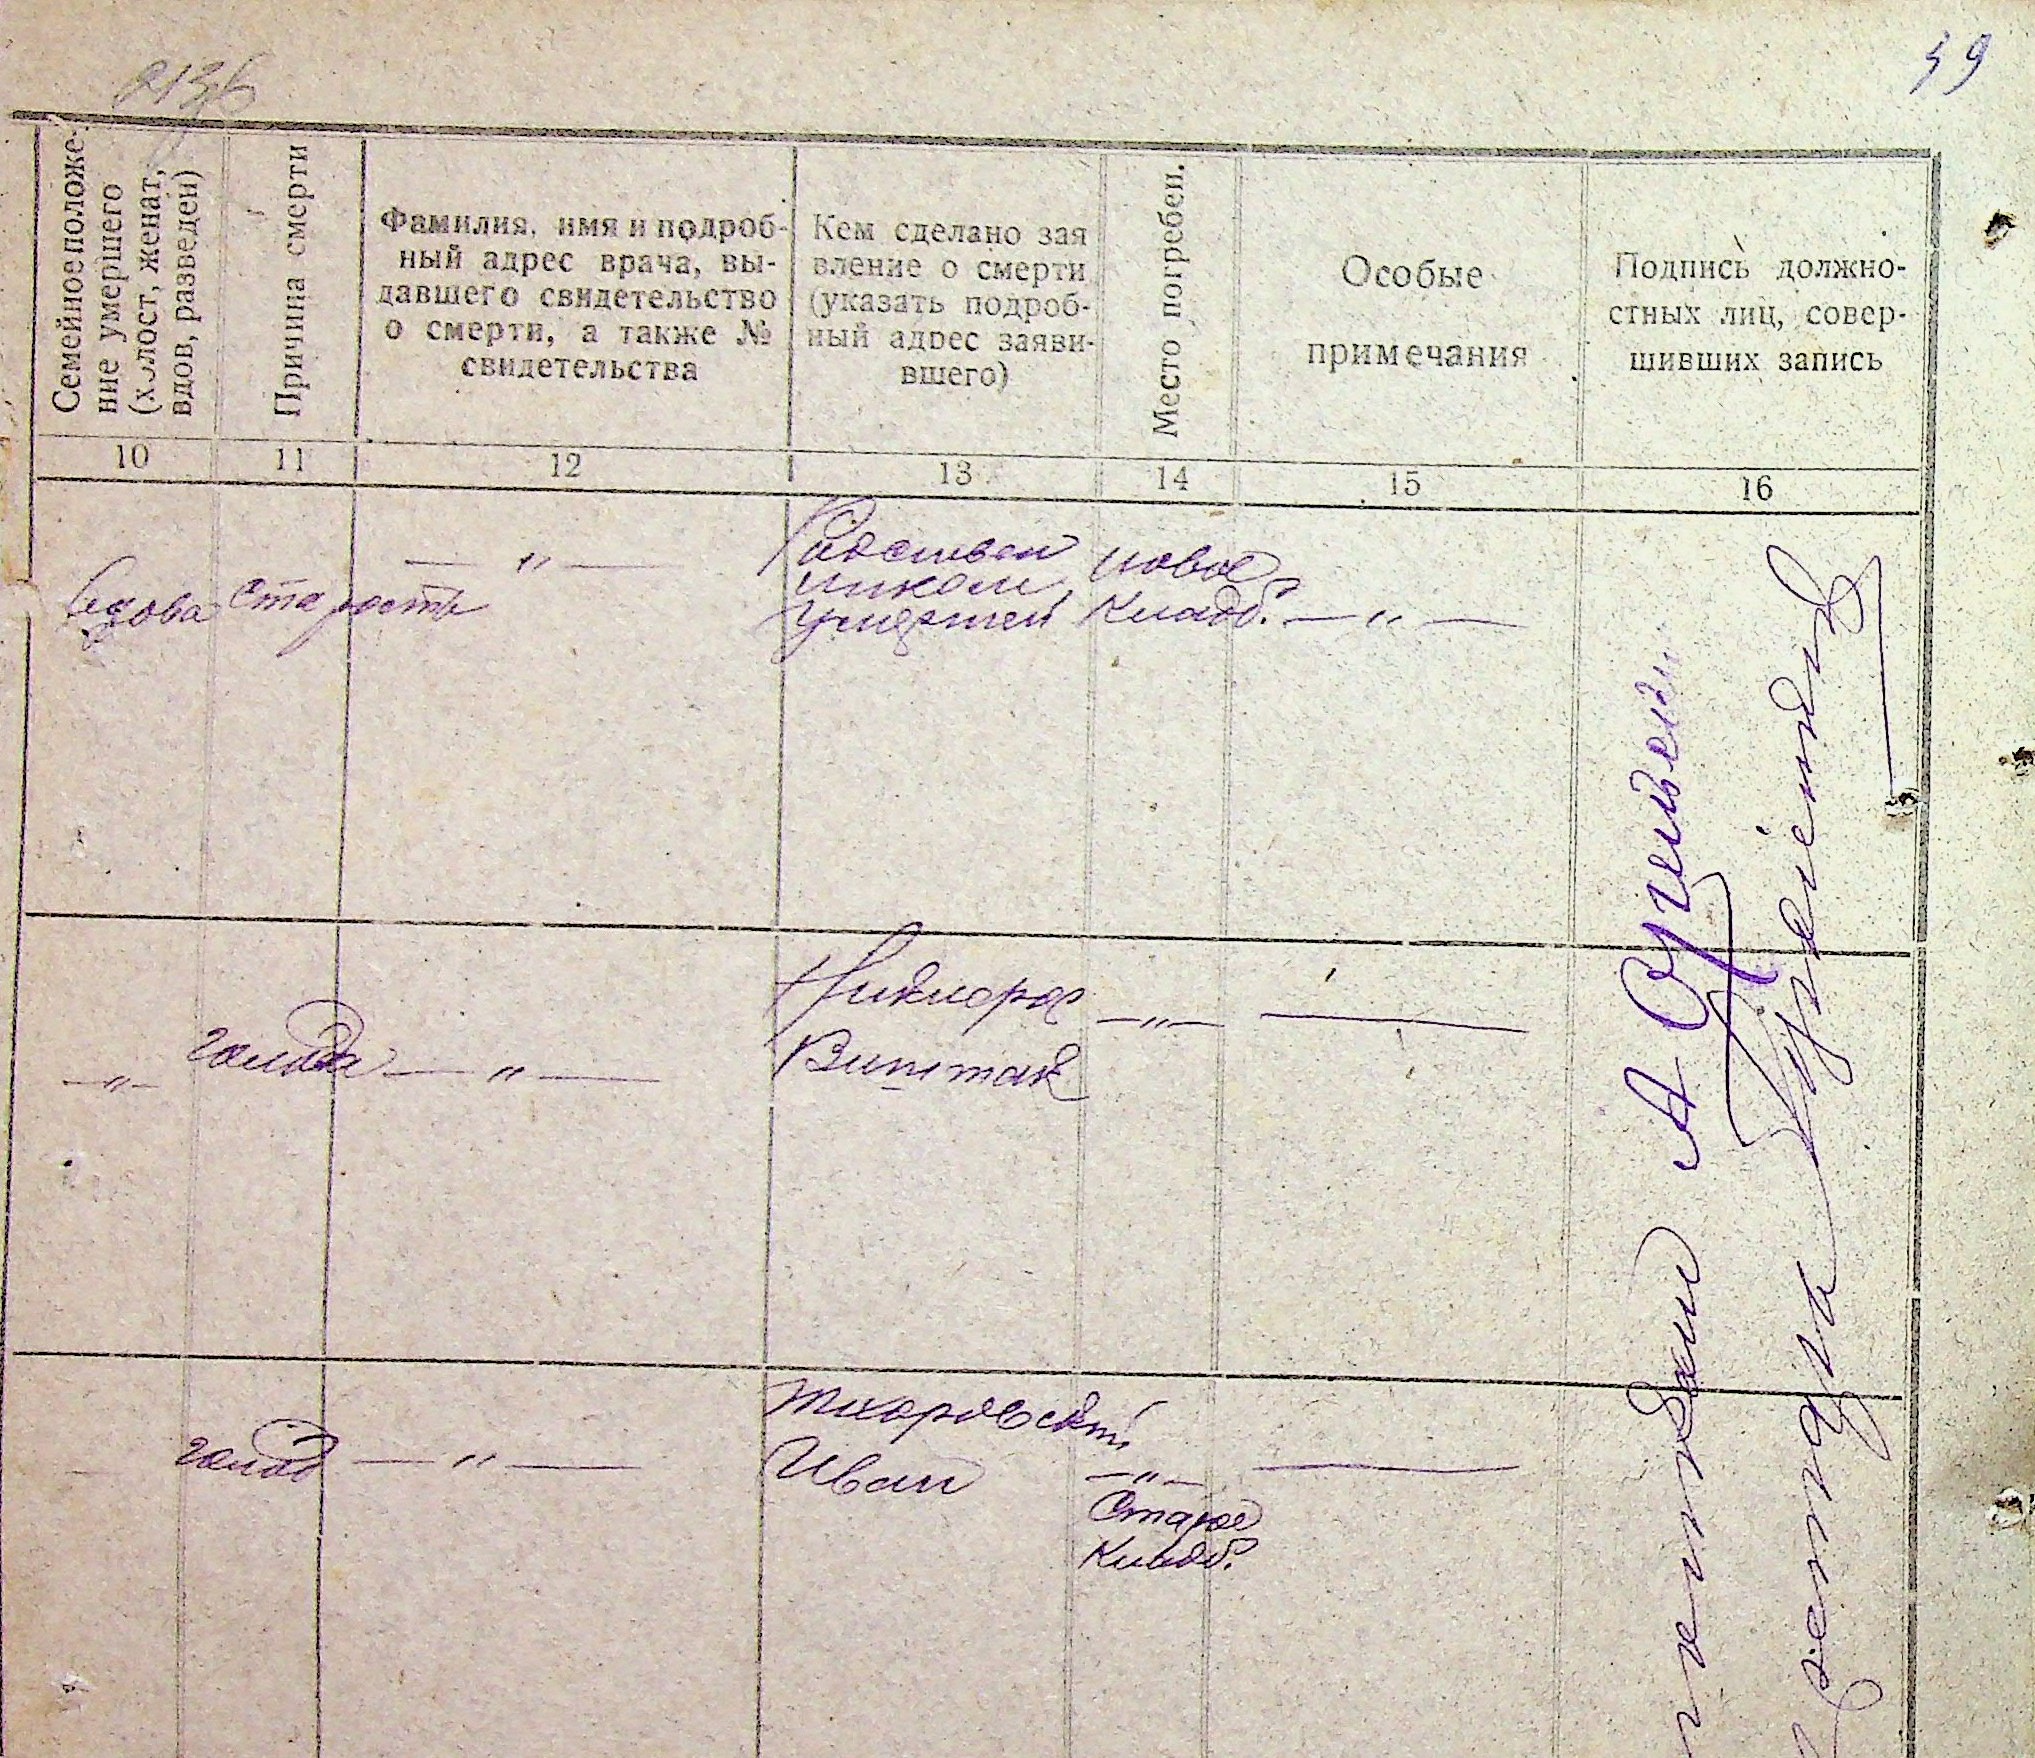 213б
59
Семейное положе-
ние умершего
(холост, женат,
вдов, разведен)
Причина смерти
Фамилия, имя и подроб-
ный адрес врача, вы-
давшего свидетельство
о смерти, а также №
свидетельства
Кем сделано зая
вление о смерти
(указать подроб-
ный адрес заяви-
вшего)
Место погребен.
Особые
примечания
Подпись должно-
стных лиц, совер-
шивших запись
10 11 12 13 14 15 16
вдова старость — " —
Родствен
ником
умершей
новое
кладб. — " —
— " — голода — " —
Никифор — " —
Виштак
голод — " —
Макаровский
Иван — " —
Старое
Кладб.